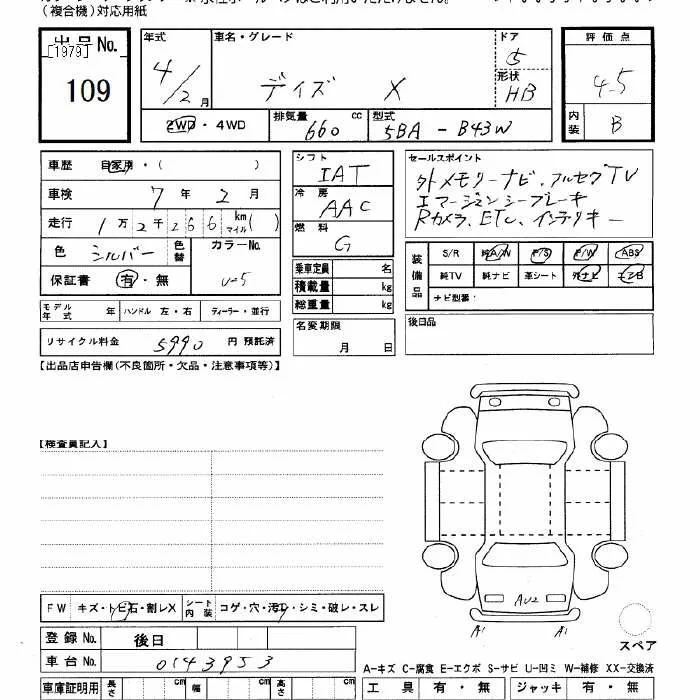 （複合機）対応用紙
出品No.
[1979]
109
年式
4/2月
車名・グレード
デイズ X
ドア
5
形状
HB
評価点
4.5
内装
B
2WD・4WD
排気量 660 cc
型式 5BA - B43W
車歴 自家用・( )
車検 7年2月
走行 1万2千266km マイル( )
色 シルバー 色替
カラーNo.
保証書 有・無
シフト
IAT
冷房
AAC
燃料
G
セールスポイント
外メモリーナビ、フルセグTV
エマージェンシーブレーキ
Rカメラ、ETC、インテリキー
装備品
S/R 純A/W P/S P/W ABS
純TV 純ナビ 革シート 外ナビ エアB
ナビ型番：
乗車定員 名
積載量 kg
総重量 kg
モデル年式 年 ハンドル 左・右 ディーラー・並行
リサイクル料金 5990 円 預託済
名変期限
月 日
後日品
【出品店申告欄(不良箇所・欠品・注意事項等)】
【検査員記入】
FW キズ・トビ石・割レX シート内装 コゲ・穴・汚レ・シミ・破レ・スレ
登録No. 後日
車台No. 0143953
AU2
A1 A1
スペア
A-キズ C-腐食 E-エクボ S-サビ U-凹ミ W-補修 XX-交換済
車庫証明用 長さ cm 幅 cm 高さ cm
工具 有・無 ジャッキ 有・無